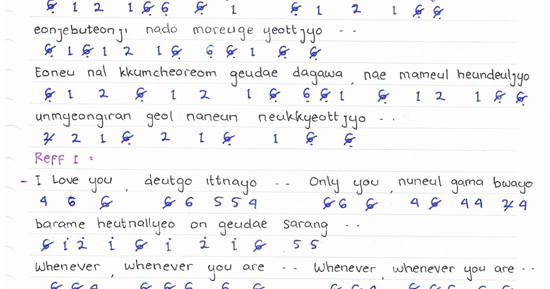 6̸ 1 2 1 6̸ 6 6̸ 1 6̸ 1 2 1 6̸ 6̸
eonjebuteonji nado moreuge yeottjyo - -
6̸ 1 6̸ 1 2 1 6̸ 6 6̸ 1 6̸ 6̸
Eoneu nal kkumcheoreom geudae dagawa, nae mameul heundeuljyo
6̸ 1 2 6̸ 1 2 1 6̸ 6 6̸ 1 6̸ 1 2 1 6̸ 6̸
unmyeongiran geol naneun neukkyeottjyo - -
2̸ 2 1 6̸ 2 1 6̸ 1 6̸ 6̸
Reff I :
- I Love you, deutgo ittnayo -- Only you, nuneul gama bwayo
4 6 6̸ 6̸ 6 5 5 4 6̸ 6 6̸ 4 6̸ 4 4 2̸ 4
barame heutnallyeo on geudae sarang - -
6̸ i 2 i 6̸ i 2 i 6̸ 5 5
Whenever, whenever you are -- Whenever, whenever you are - -